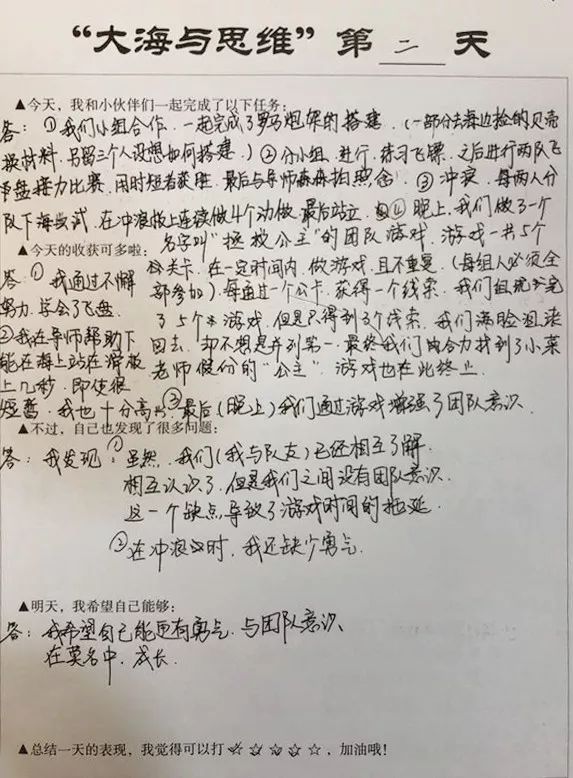 “大海与思维”第 二 天
▲今天，我和小伙伴们一起完成了以下任务：
答：①我们小组合作，一起完成了罗马炮架的搭建．（一部分去海边捡的贝壳
换材料．另留三个人设想如何搭建．）②分小组．进行．练习飞镖．之后进行两队飞
盘接力比赛．用时短者获胜．最后与导师森森拍照念．③冲浪．每两人分
队下海尝试．在冲浪板上连续做4个动做．最后站立．④晚上，我们做了一个
名字叫“拯救公主”的团队游戏．游戏一共5个
▲今天的收获可多啦：
关卡．在一定时间内．做游戏．且不重复．（每组人必须全
部参加）．每通过一个公卡．获得一个线索．我们组完
了5个游戏．但是只得到3个线索．我们满脸沮
回去．却不想是并列第一．最终我们合力找到了小菜
老师假份的“公主”．游戏也在此终止．
答：①我通过不懈
努力．学会了飞盘．
②我在导师帮助下
能在海上站在滑板
上几秒．即使很
短暂．我也十分高兴．③最后（晚上）我们通过游戏增强了团队意识．
▲不过，自己也发现了很多问题：
答：我发现：①虽然．我们（我与队友）已经相互了解．
相互认识了．但是我们之间没有团队意识．
这一个缺点．导致了游戏时间的拖延．
②在冲浪时．我还缺少勇气．
▲明天，我希望自己能够：
答：我希望自己能更有勇气．与团队意识．
在莫名中．成长．
▲总结一天的表现，我觉得可以打☆☆☆☆☆，加油哦！